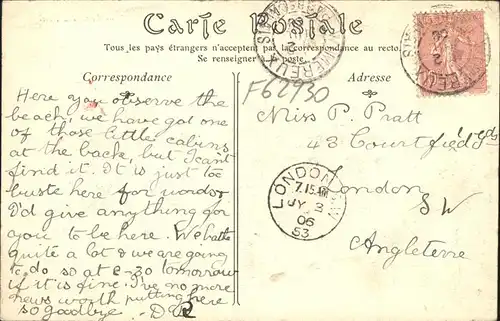 Carte Postale
Tous les pays étrangers n'acceptent pas la correspondance au recto
Se renseigner
Correspondance
Adresse
F62930
Here you observe the
beach, we have got one
of those little cabins
at the back, but I can't
find it. It is just too
buste here for words
I'd give anything for
you to be here. We bathe
quite a lot & we are going
to do so at 6-30 tomorrow
if it is fine. I've no more
news worth putting here
so goodbye. D
Miss P. Pratt
43 Courtfield gds
London
SW
Angleterre
LONDON. S.W
7.15 AM
JY 3
06
53